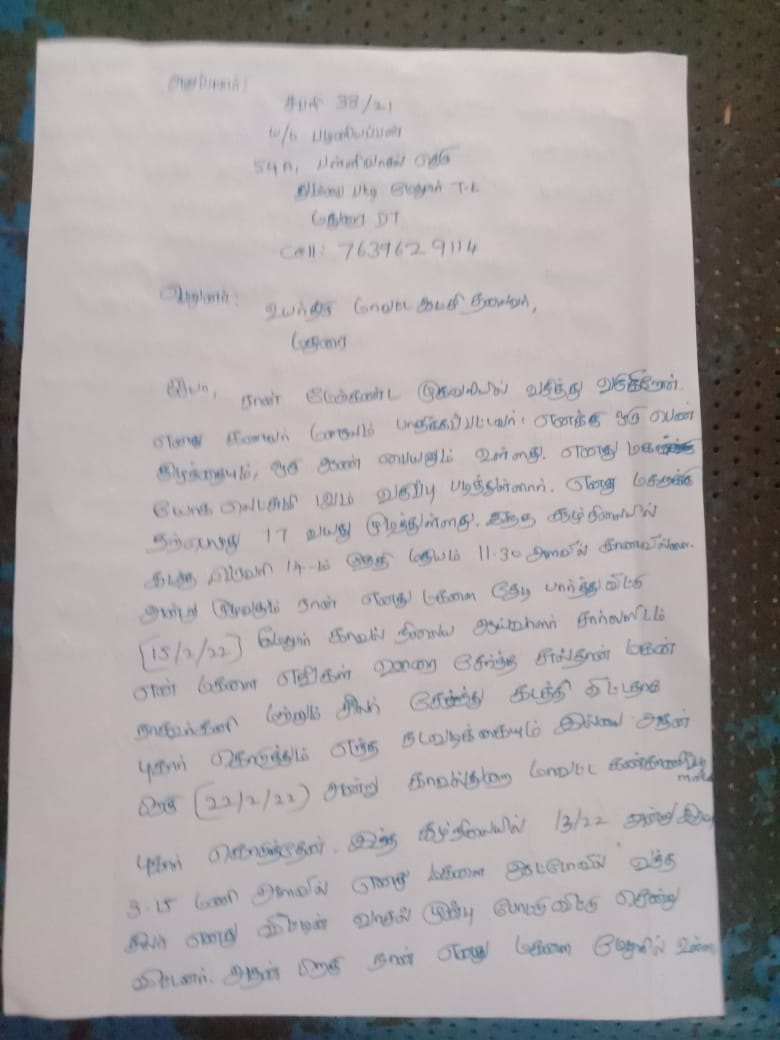 அனுப்புனர்:
சபரி 38/21
W/o பழனியப்பன்
54A, பள்ளிவாசல் தெரு
மேலூர் T.K
மதுரை DT
Cell: 7639629114
பெறுனர்:
உயர்திரு மாவட்ட ஆட்சி தலைவர்,
மதுரை
ஐயா, நான் மேற்கண்ட முகவரியில் வசித்து வருகிறேன்.
எனது கணவர் மனநலம் பாதிக்கப்பட்டவர். எனக்கு ஒரு பெண்
குழந்தையும், ஒரு ஆண் பையனும் உள்ளது. எனது
வகுப்பு படித்துள்ளார். எனது மகளுக்கு
தற்பொழுது 17 வயது முடிந்துள்ளது. இந்த சூழ்நிலையில்
கடந்த பிப்ரவரி 14-ம் தேதி மதியம் 11.30 அளவில் காணவில்லை.
அன்று முழுவதும் நான் எனது மகளை தேடி பார்த்துவிட்டு
[15/2/22] மேலூர் காவல் நிலைய ஆய்வாளர் சார்லஸிடம்
என் மகளை ஊரை சேர்ந்த சுல்தான் மகன்
நாகூர்கனி மற்றும் சிலர் சேர்ந்து கடத்தி விட்டதாக
புகார் கொடுத்தும் எந்த நடவடிக்கையும் இல்லை அதன்
(22/2/22) அன்று காவல்துறை மாவட்ட
புகார் கொடுத்தேன். இந்த சூழ்நிலையில் 13/22 அன்று
3.15 மணி அளவில் எனது மகளை ஆட்டோவில் வந்த
சிலர் எனது வீட்டின் வாசல் முன்பு போட்டுவிட்டு சென்று
விட்டனர். அதன் பிறகு நான் எனது மகளை மேலூரில் உள்ள